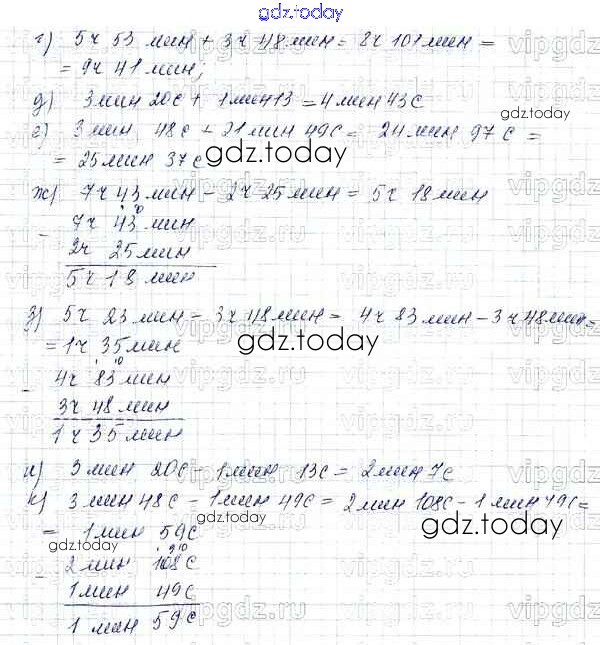 gdz.today
г) 5ч 53 мин + 3ч 48 мин = 8ч 101 мин =
= 9ч 41 мин;
д) 3 мин 20с + 1 мин 13 = 4 мин 43с
е) 3 мин 48с + 21 мин 49с = 24 мин 97с =
= 25 мин 37с
gdz.today
ж) 7ч 43 мин - 2ч 25 мин = 5ч 18 мин
7ч 43 мин
- 2ч 25 мин
5ч 18 мин
gdz.today
з) 5ч 23 мин - 3ч 48 мин = 4ч 83 мин - 3ч 48 мин =
= 1ч 35 мин
gdz.today
4ч 83 мин
- 3ч 48 мин
1ч 35 мин
и) 3 мин 20с - 1 мин 13с = 2 мин 7с
к) 3 мин 48с - 1 мин 49с = 2 мин 108с - 1 мин 49с =
gdz.today
gdz.today
= 1 мин 59с
gdz.today
2 мин 108с
- 1 мин 49с
1 мин 59с